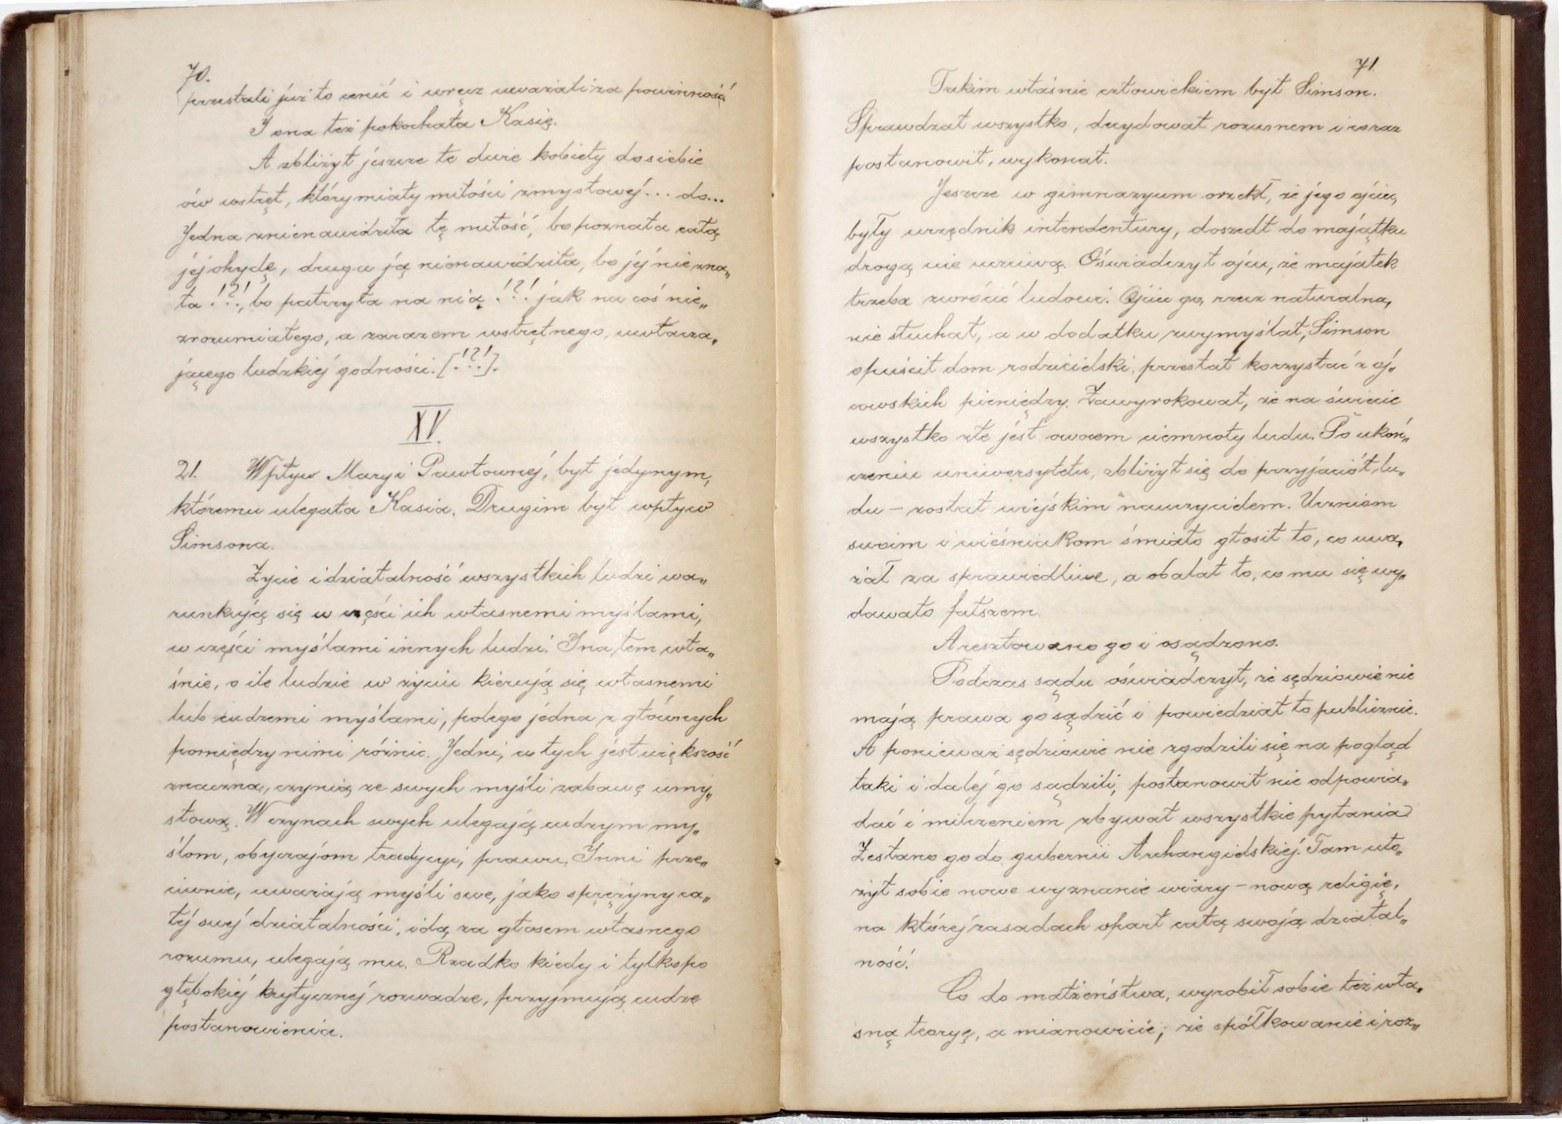 70.
przestali już to cenić i wręcz uważali za powinność
I ona też pokochała Kasię.
A zbliżył jeszcze te dwie kobiety do siebie
ów wstręt, który miały miłości zmysłowéj... do...
Jedna znienawidziła tę miłość, bo poznała całą
jéj ohydę, druga ją nienawidziła, bo jéj nie zna„
ła !?!, bo patrzyła na nią !?! jak na coś nie„
zrozumiałego, a zarazem wstrętnego, uwłacza„
jącego ludzkiéj godności. [!?!].
XV.
21. Wpływ Maryi Pawłownéj, był jedynym,
któremu ulegała Kasia. Drugim był wpływ
Simsona.
Życie i działalność wszystkich ludzi wa„
runkują się w części ich własnemi myślami,
w części myślami innych ludzi. I na tem wła„
śnie, o ile ludzie w życiu kierują się własnemi
lub cudzemi myślami, polega jedna z głównych
pomiędzy nimi różnic. Jedni, a tych jest większość
znaczna, czynią ze swych myśli zabawę umy„
słową. W czynach swych ulegają cudzym my„
ślom, obyczajom tradycyi, prawu. Inni prze„
ciwnie, uważają myśli swe, jako sprężyny ca„
łéj swéj działalności, idą za głosem własnego
rozumu, ulegają mu. Rzadko kiedy i tylko po
głębokiéj krytycznéj rozwadze, przyjmują cudze
postanowienia.
71
Takim właśnie człowiekiem był Simson.
Sprawdzał wszystko, decydował rozumem i co raz
postanowił, wykonał.
Jeszcze w gimnazyum orzekł, że jego ojciec,
były urzędnik intendentury, doszedł do majątku
drogą nie uczciwą. Oświadczył ojcu, że majątek
trzeba zwrócić ludowi. Ojciec go, rzecz naturalna,
nie słuchał, a w dodatku zwymyślał, Simson
opuścił dom rodzicielski, przestał korzystać z oj„
cowskich pieniędzy. Zawyrokował, że na świecie
wszystko złe jést owocem ciemnoty ludu. Po ukoń„
czeniu uniwersytetu, zbliżył się do przyjaciół lu„
du – został wiejskim nauczycielem. Uczniom
swoim i wieśniakom śmiało głosił to, co uwa„
żał za sprawiedliwe, a obalał to, co mu się wy„
dawało fałszem.
Aresztowano go i osądzono.
Podczas sądu oświadczył, że sędziowie nie
mają prawa go sądzić i powiedział to publicznie.
A ponieważ sędziowie nie zgodzili się na pogląd
taki i daléj go sądzili, postanowił nie odpowia„
dać i milczeniem zbywał wszystkie pytania
Zesłano go do gubernii Archangielskiéj. Tam uło„
żył sobie nowe wyznanie wiary – nową religię,
na któréj zasadach oparł całą swoją działal„
ność.
Co do małżeństwa, wyrobił sobie też wła„
sną teoryę, a mianowicie; że spółkowanie i roz„